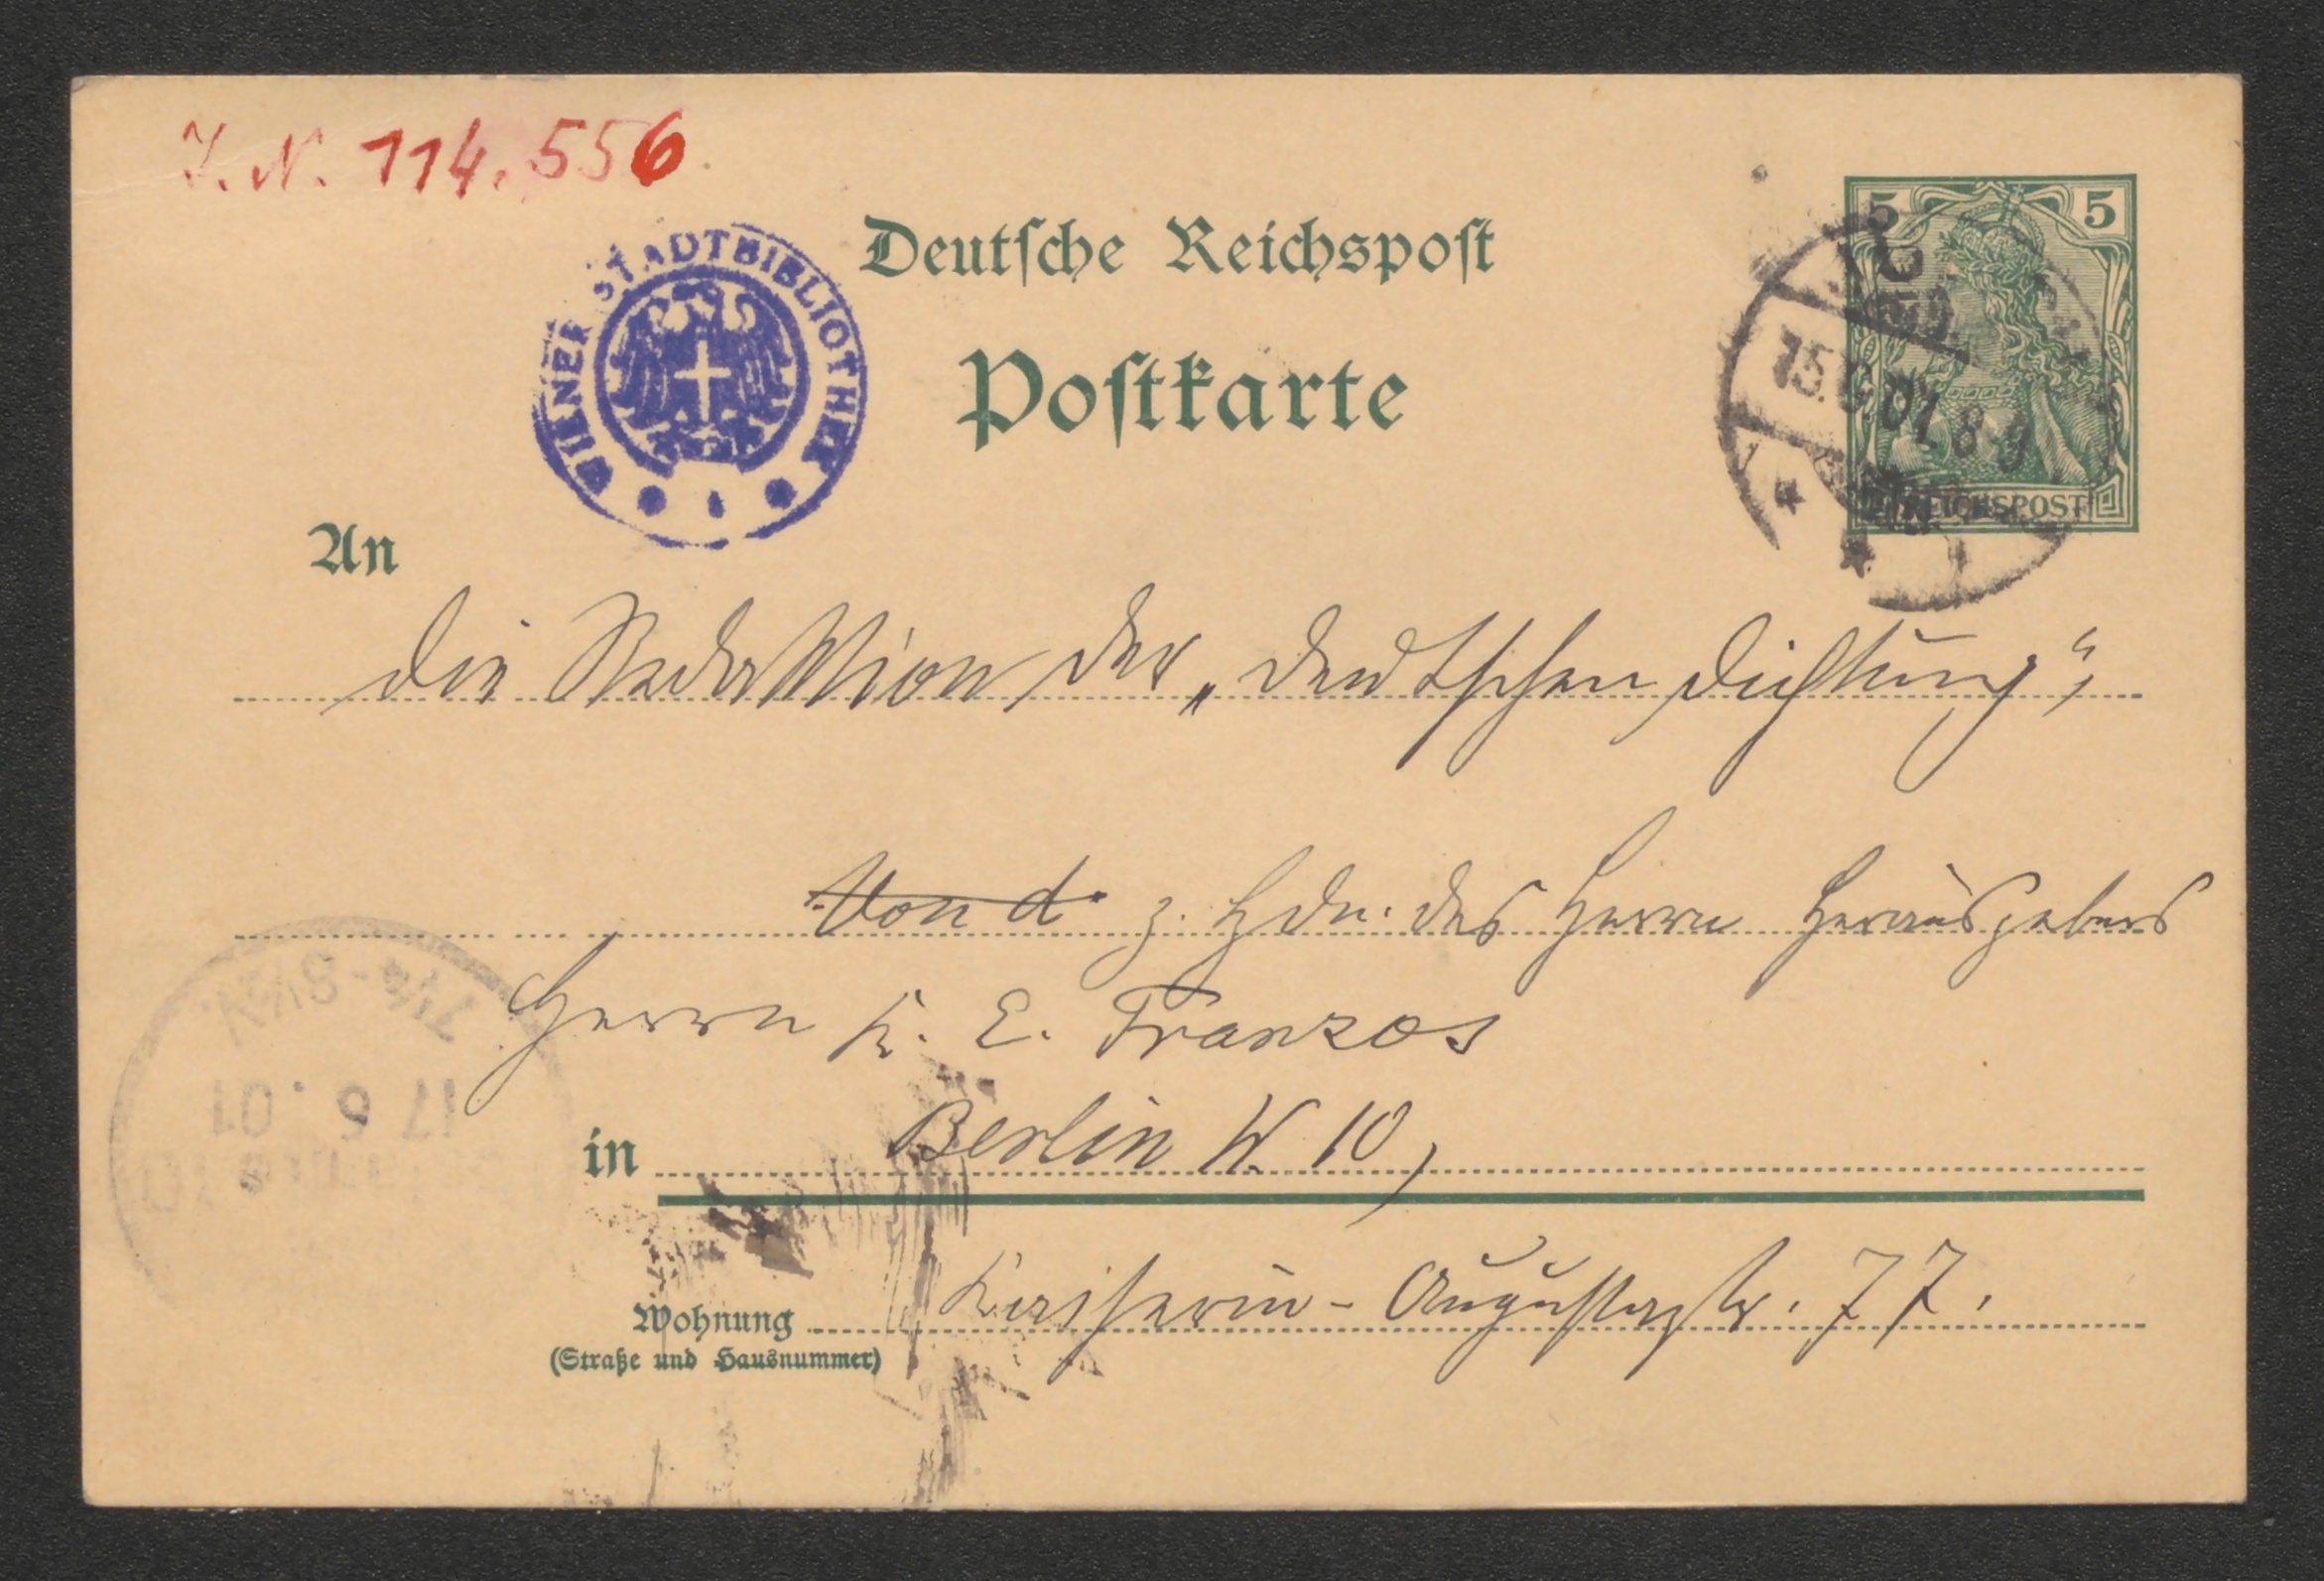 J. N. 114.556
Deutsche Reichspost
Postkarte
WIENER STADTBIBLIOTHEK
5 5
REICHSPOST
15.6.01 8-9
An
die Redaktion der „deutschen Dichtung“,
Von d. z. Hdn. des Herrn Herausgebers
Herrn K. E. Franzos
in Berlin W. 10,
17 6.01
Wohnung Kaiserin-Augustastr. 77.
(Straße und Hausnummer)